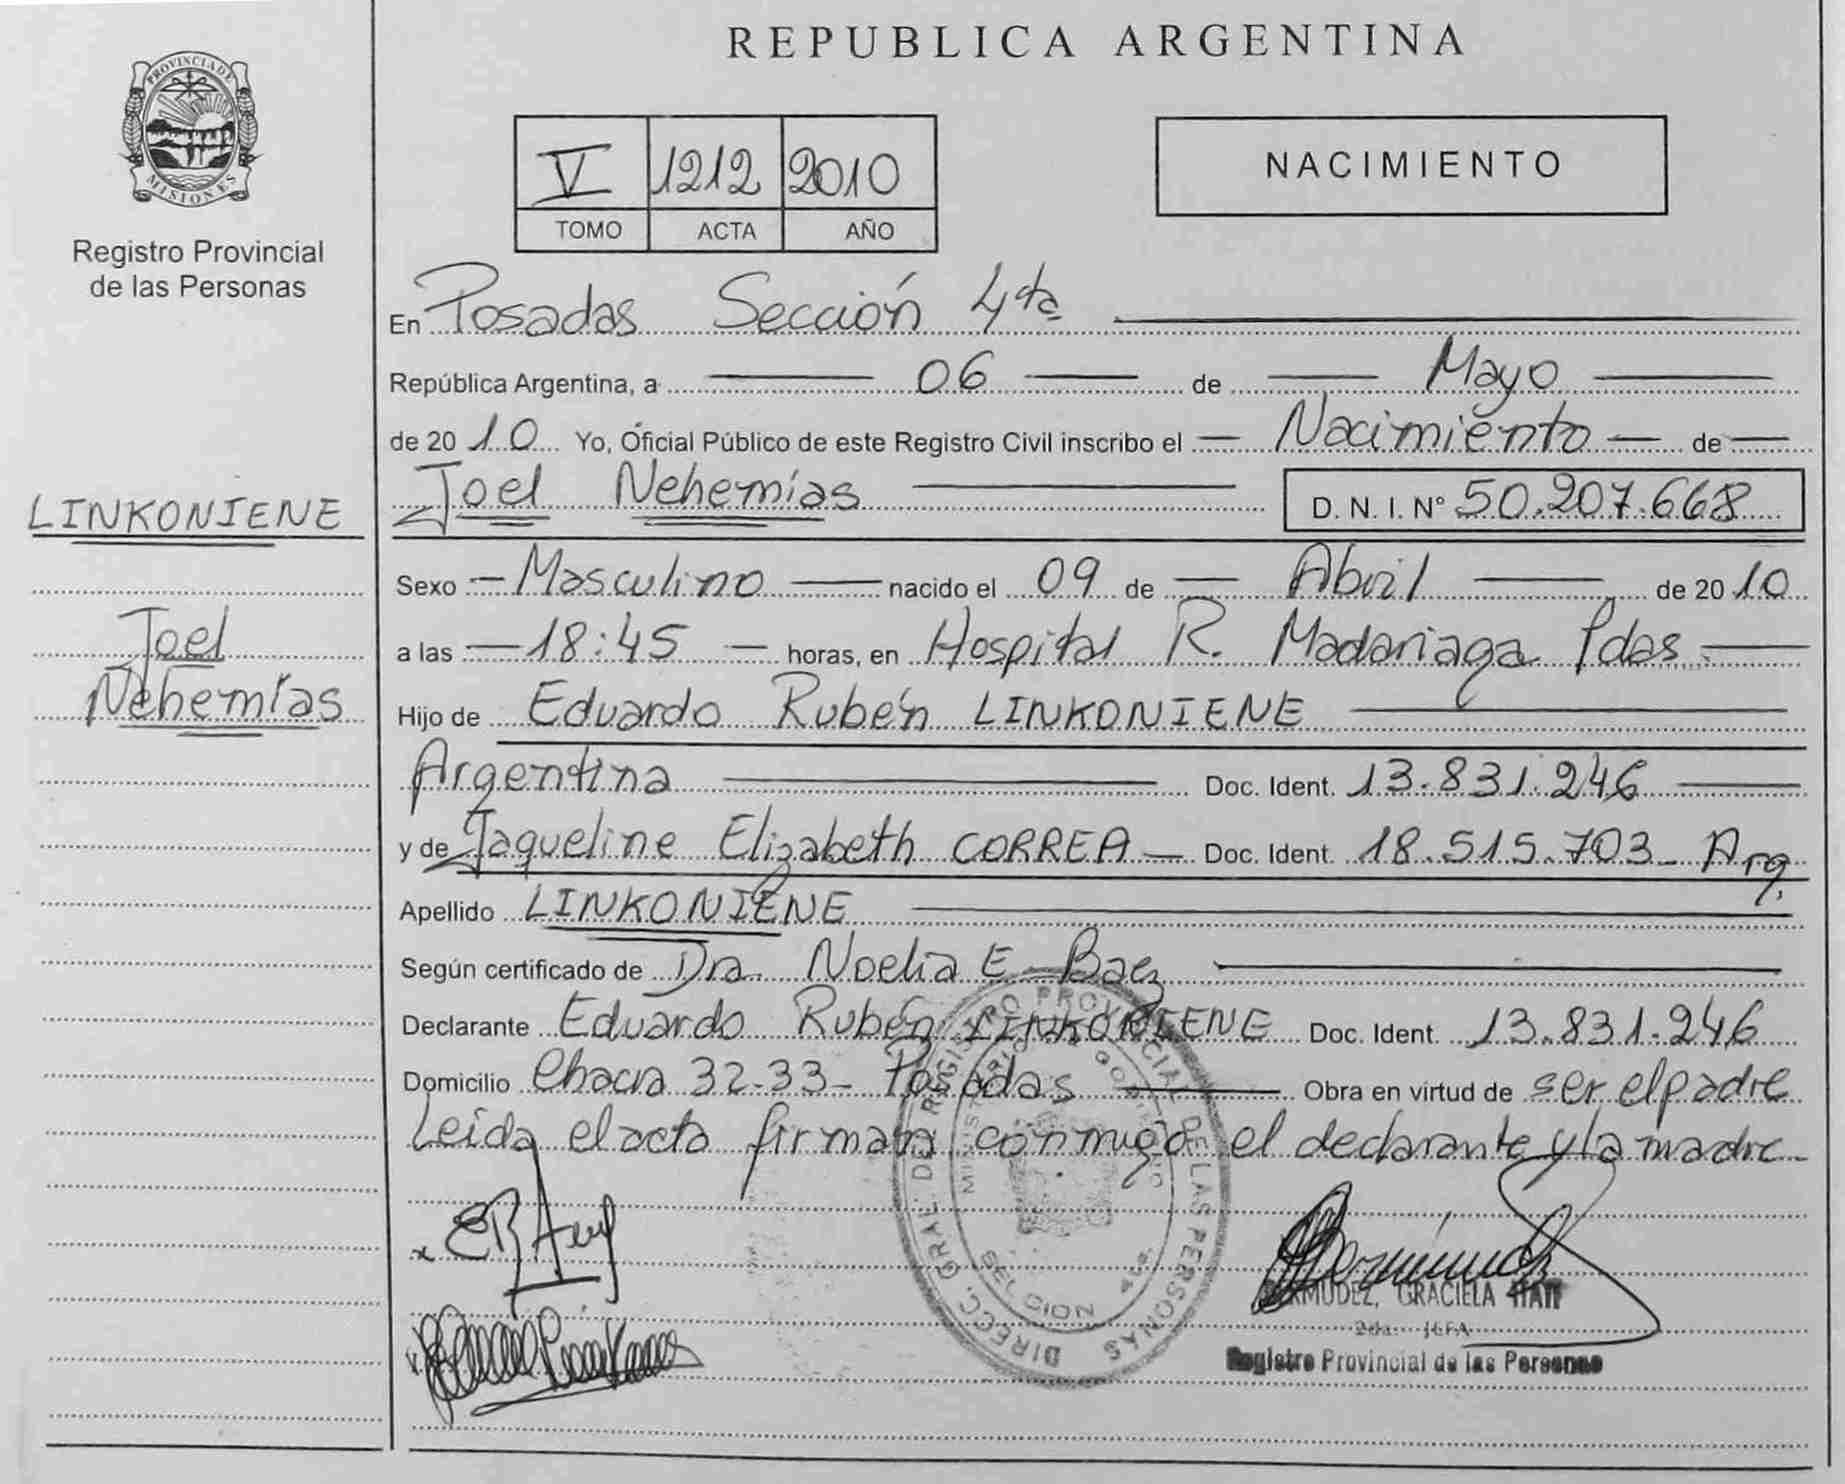 REPUBLICA ARGENTINA
PROVINCIA DE
MISIONES
Registro Provincial
de las Personas
V 1212 2010
TOMO ACTA AÑO
NACIMIENTO
En Posadas Sección 4ta
República Argentina, a 06 de Mayo
de 2010 Yo, Oficial Público de este Registro Civil inscribo el Nacimiento de
Joel Nehemías D. N. I. Nº 50.207.668
LINKONIENE
Joel
Nehemías
Sexo Masculino nacido el 09 de Abril de 2010
a las 18:45 horas, en Hospital R. Madariaga Pdas
Hijo de Eduardo Rubén LINKONIENE
Argentina Doc. Ident. 13.831.246
y de Jaqueline Elizabeth CORREA Doc. Ident. 18.515.703 Arg.
Apellido LINKONIENE
Según certificado de Dra. Noelia E. Baez
Declarante Eduardo Rubén LINKONIENE Doc. Ident. 13.831.246
Domicilio Chacra 32-33- Posadas Obra en virtud de ser el padre
Leída el acta firman conmigo el declarante y la madre
DIRECC. GRAL. DE REGISTRO PROVINCIAL DE LAS PERSONAS
MINISTERIO DE GOBIERNO
SECCION 4ta.
BERMUDEZ, GRACIELA ITATI
2da. JEFA
Registro Provincial de las Personas